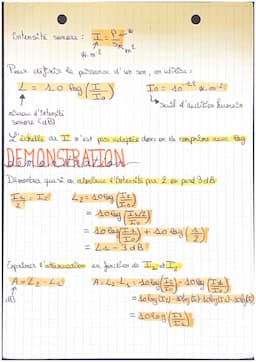 Intensité sonore : I = P/S
W.m⁻²
Pour définir la puissance d'un son, on utilise :
L = 10 log (I/I₀)
I₀ = 10⁻¹² W.m⁻²
niveau d'intensité
sonore (dB)
seuil d'audition humain
L'échelle de I n'est pas adaptée donc on la comprime avec log
DEMONSTRATION
Démontrer que si on atténue l'intensité par 2 on perd 3 dB
I₁/2 = I₂
L₂ = 10 log (I₂/I₀)
= 10 log (I₁/2/I₀)
= 10 log (I₁/I₀) + 10 log (1/2)
= L₁ - 3 dB
Exprimer l'atténuation en fonction de I₂ et I₁
A = L₂ - L₁
dB
A = L₂ - L₁ = 10 log (I₂/I₀) - 10 log (I₁/I₀)
= 10 log (I₂) - 10 log (I₀) - 10 log (I₁) - 10 log (I₀)
= 10 log (I₂/I₁)